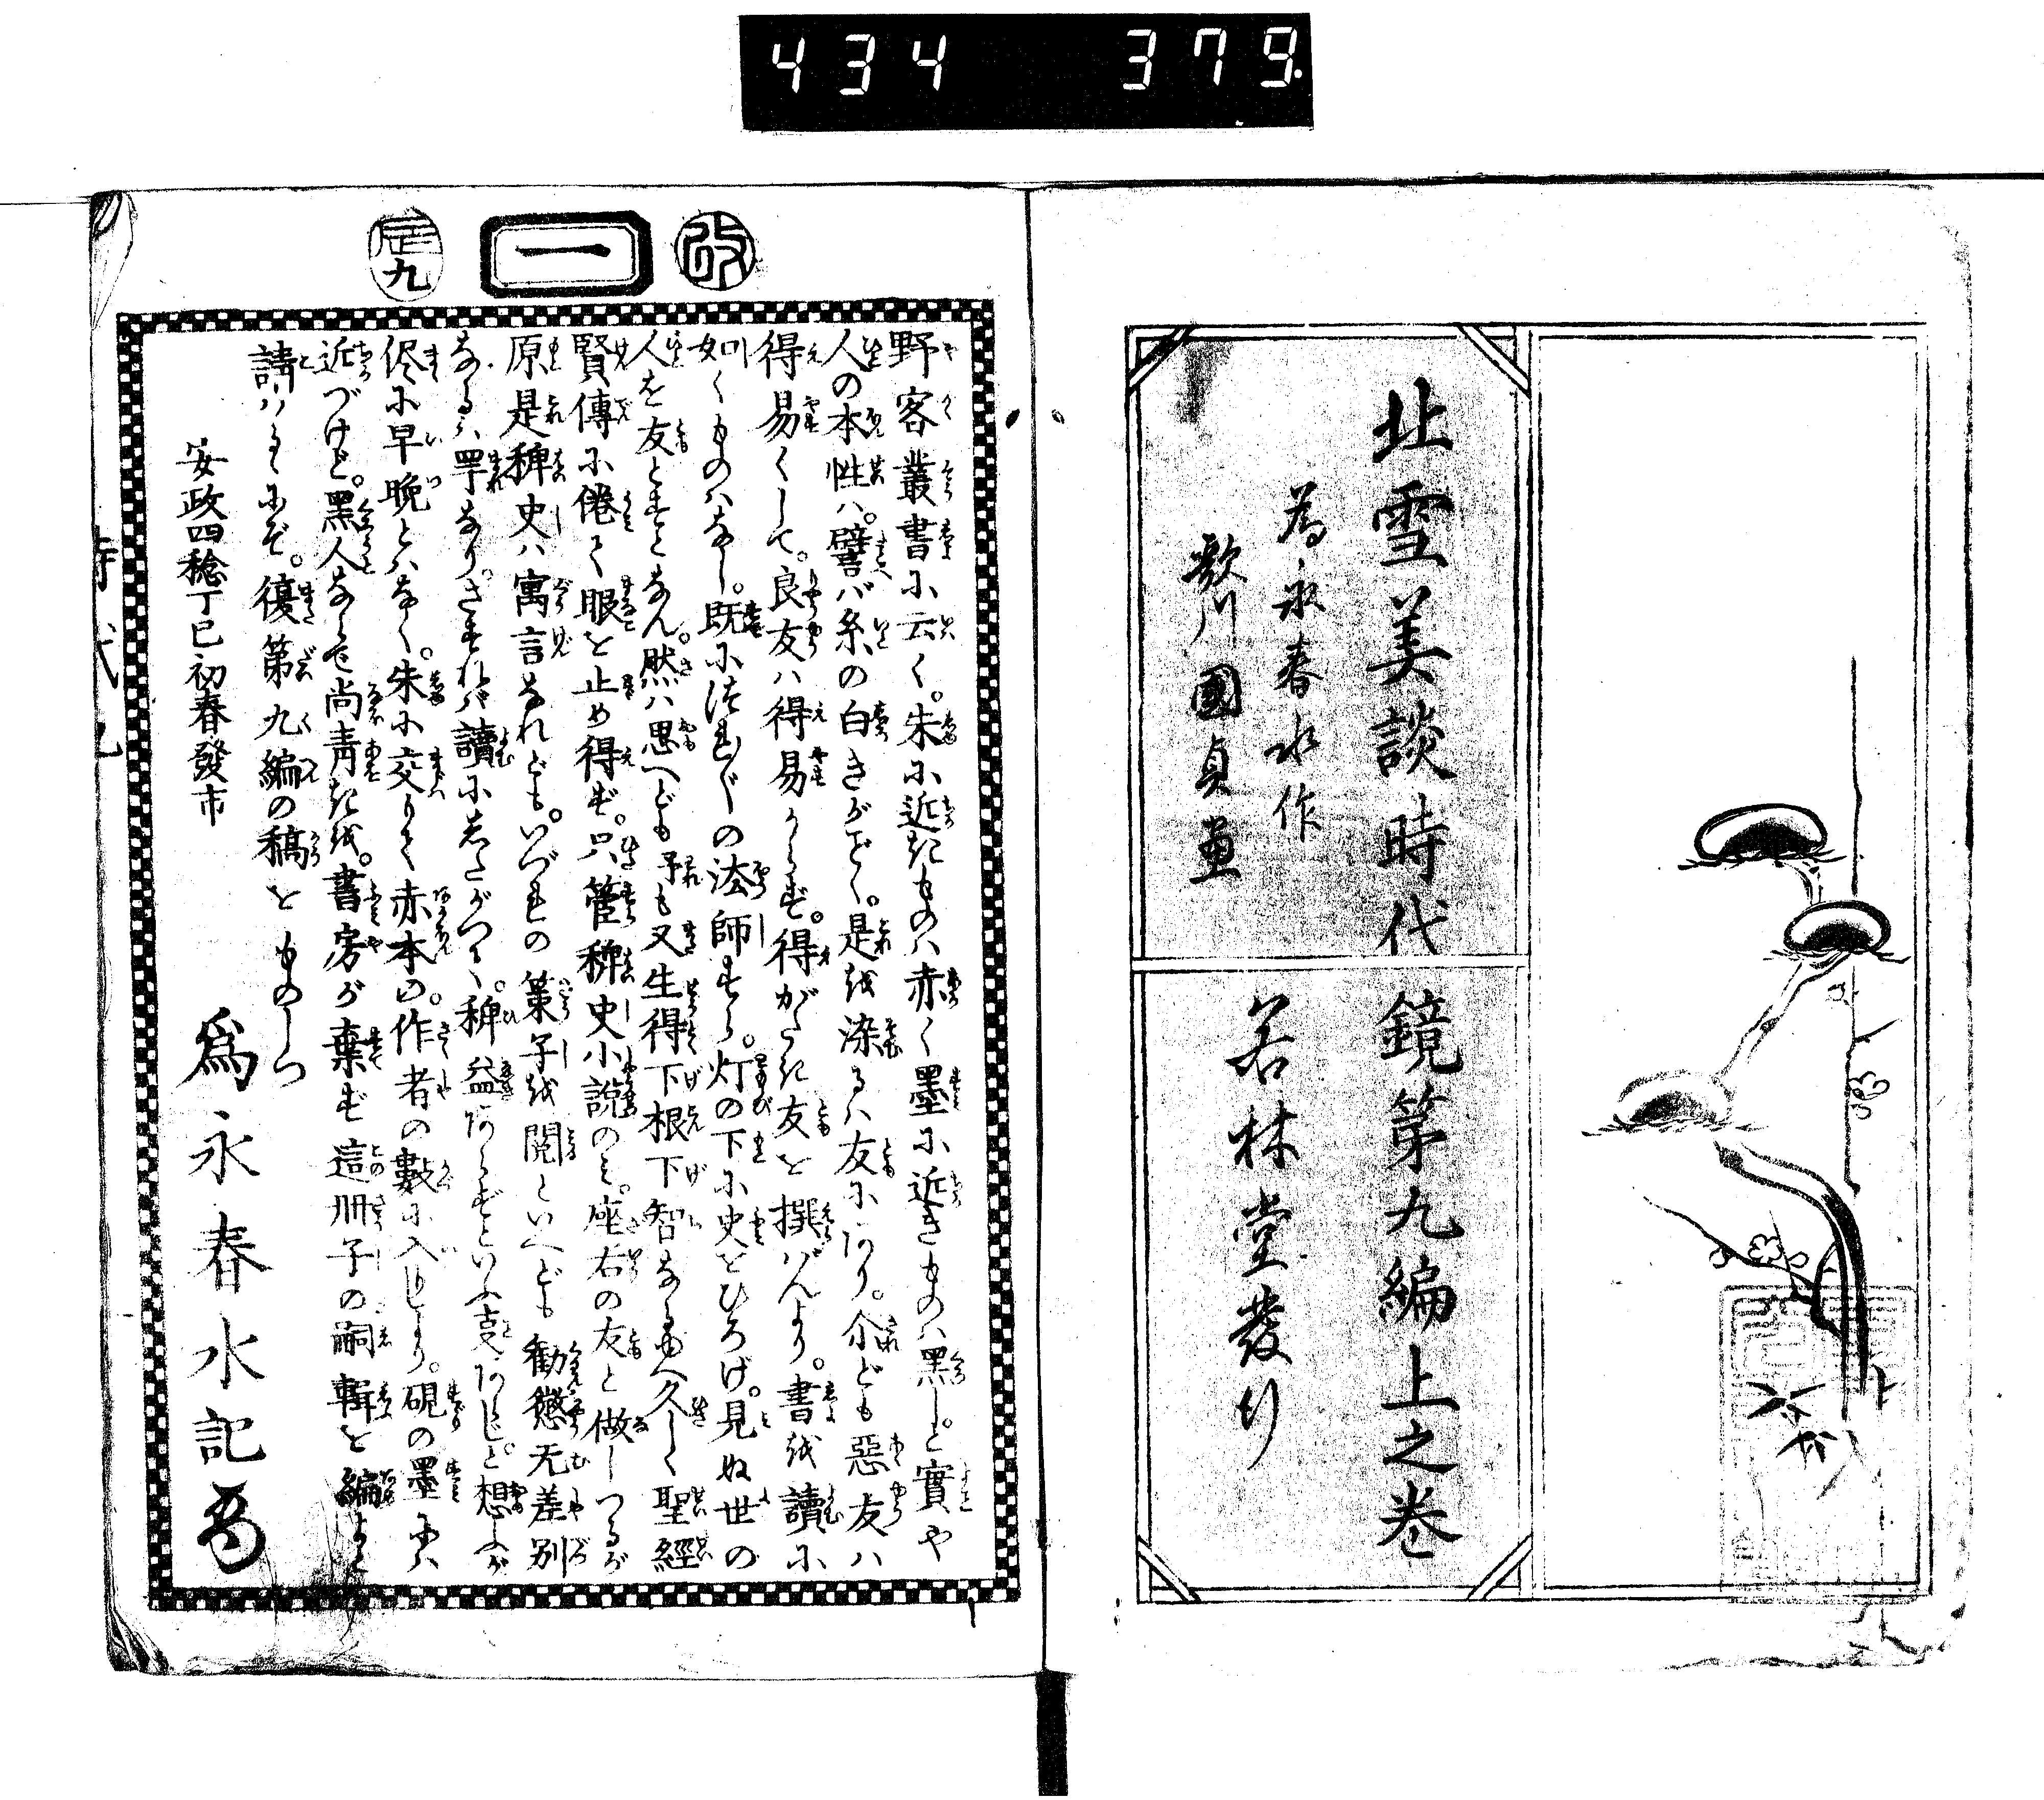 434 379.
北雪美談時代鏡第九編上之巻
為永春水作
歌川國貞画
若林堂發行
改
一
巳九
野客叢書に云く。朱に近きものハ赤く墨に近きものハ黒しと實や
人の本性ハ。譬バ糸の白きがごとく。是を染るハ友にあり。尓ども惡友ハ
得易くして。良友ハ得易からず。得がたき友を撰バんより。書を讀に
如くものハなし。既につれ〴〵の法師すら。灯の下に史をひろげ。見ぬ世の
人を友とすとなん。然ハ思へども予も又生得下根下智なるゆへ久しく聖經
賢傳に倦て眼を止め得ず。只管稗史小説のミ。座右の友と做しつるが
原是稗史ハ寓言なれども。いづれの策子を閲といへども勸懲无差別
なるハ罕なり。されバ讀にしたがつて。稗益あらずといふ支あらじと。想ふが
侭に早晩とハなく。朱に交りて赤本の。作者の數に入しより。硯の墨にハ
近づけど。黒人ならで尚青きを。書房が棄ず這冊子の嗣輯を編よと
請ハるゝにぞ。復第九編の稿をものしつ
安政四稔丁巳初春發市
爲永春水記
時代九